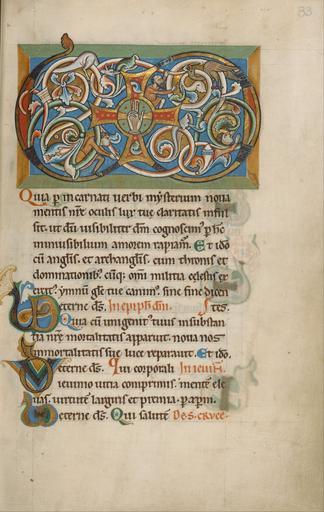 33
Quia p incarnati uerbi mysterium noua
mentis nr̄e oculis lux tue claritatis inful
sit. ut dū uisibiliter dm̄ cognoscim᷒ p hc̄
inuisibilium amorem rapiam᷒. Et ido
cū anglis. et archanglis. cum thronis et
dominationib᷒. cūq; om̄i militia celestis ex
ercit᷒. ymnū gl̄e tue canim᷒. sine fine dicen
eterne ds̄. In epiph dn̄i. Scs̄.
Quia cū unigenit᷒ tuus in substan
tia nr̄e mortalitatis apparuit. noua nos
immortalitatis sue luce reparauit. Et ido.
eterne ds̄. Qui corporali In ieiuñ.
ieiunio uitia comprimis. mentē ele
uas. uirtutē largiris et premia. p xp̄m.
eterne ds̄. Qui salutē De S. Cruce.